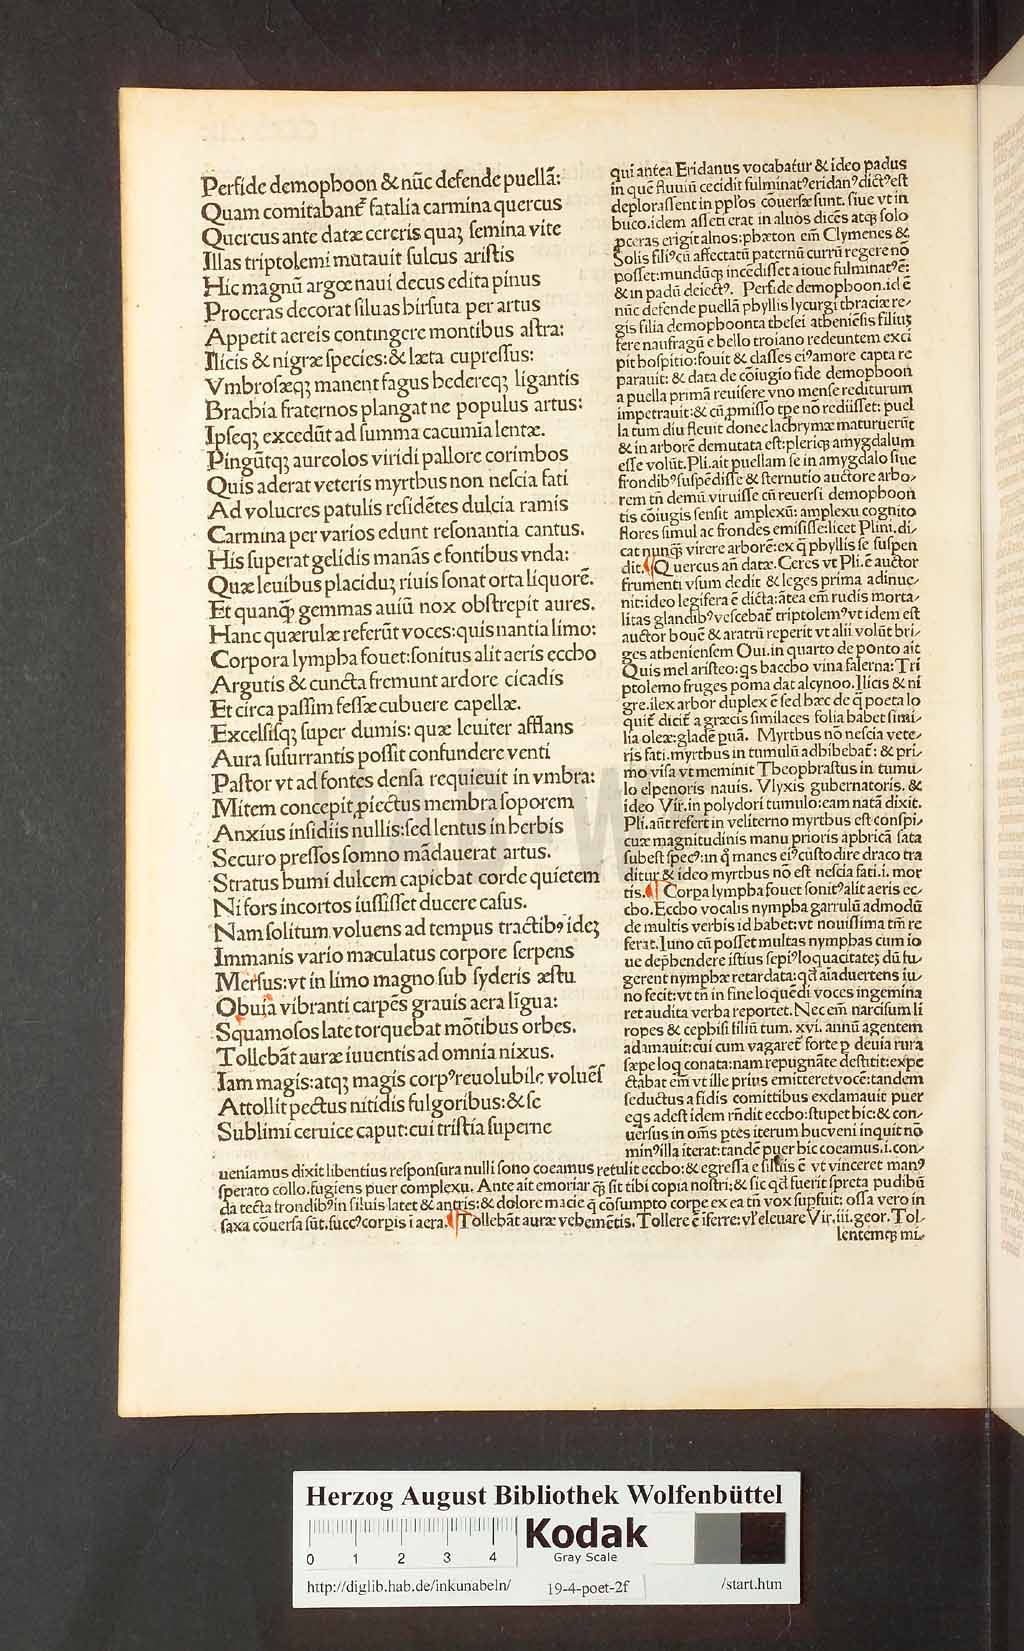 Perfide demophoon & nūc defende puellā:
Quam comitabant᷑ fatalia carmina quercus
Quercus ante datæ cereris quaꝫ semina vite
Illas triptolemi mutauit sulcus aristis
Hic magnū argoæ naui decus edita pinus
Proceras decorat siluas hirsuta per artus
Appetit aereis contingere montibus astra:
Ilicis & nigræ species: & læta cupressus:
Vmbrosæqꝫ manent fagus hedereqꝫ ligantis
Brachia fraternos plangat ne populus artus:
Ipseqꝫ excedūt ad summa cacumina lentæ.
Pingūtqꝫ aureolos viridi pallore corimbos
Quis aderat veteris myrthus non nescia fati
Ad volucres patulis residētes dulcia ramis
Carmina per varios edunt resonantia cantus.
His superat gelidis manās e fontibus vnda:
Quæ leuibus placiduꝫ riuis sonat orta liquorē.
Et quanqꝫ̄ gemmas auiū nox obstrepit aures.
Hanc quærulæ referūt voces: quis nantia limo:
Corpora lympha fouet: sonitus alit aeris eccho
Argutis & cuncta fremunt ardore cicadis
Et circa passim fessæ cubuere capellæ.
Excelsisqꝫ super dumis: quæ leuiter afflans
Aura susurrantis possit confundere venti
Pastor vt ad fontes densa requieuit in vmbra:
Mitem concepit, piectus membra soporem
Anxius insidiis nullis: sed lentus in herbis
Securo pressos somno mādauerat artus.
Stratus humi dulcem capiebat corde quietem
Ni fors incortos iussisset ducere casus.
Nam solitum voluens ad tempus tractibꝰ ideꝫ
Immanis vario maculatus corpore serpens
Mersus: vt in limo magno sub syderis æstu
Obuia vibranti carpēs grauis aera līgua:
Squamosos late torquebat mōtibus orbes.
Tollebāt auræ iuuentis ad omnia nixus.
Iam magis: atqꝫ magis corpꝰ reuolubile voluēs
Attollit pectus nitidis fulgoribus: & se
Sublimi ceruice caput: cui tristia superne
qui antea Eridanus vocabatur & ideo padus
in quē fluuiū cecidit fulminatꝰ eridanꝰ dictꝰ est
deplorassent in pplōs cōuersæ sunt. siue vt in
buco. idem asseti erat in aluos dicēs atqꝫ solo
pceras erigit alnos: phæton em̄ Clymenes &
Solis filiꝰ cū affectatū paternū currū regere nō
posset: mundūqꝫ incēdisset a ioue fulminatꝰ ē:
& in padū deiectꝰ. Perfide demophoon. id ē
nūc defende puellā phyllis lycurgi thraciæ re-
gis filia demophoonta thesei atheniēsis filiuꝫ
fere naufragū e bello troiano redeuntem exci
pit hospitio: fouit & classes eiꝰ amore capta re
parauit: & data de cōiugio fide demophoon
a puella primā reuisere vno mense rediturum
impetrauit: & cū pmisso tpe nō rediisset: puel
la tum diu fleuit donec lachrymæ maturuerūt
& in arborē demutata est: pleriqꝫ amygdalum
esse volūt. Pli. ait puellam se in amygdalo siue
frondibꝰ suspēdisse & sternutio auctore arbo-
rem tn̄ demū viruisse cū reuersi demophoon
tis cōiugis sensit amplexū: amplexu cognito
flores simul ac frondes emisisse licet Plini. di-
cat nunqꝫ̄ virere arborē: ex q̄ phyllis se suspen
dit. ¶ Quercus an̄ datæ. Ceres vt Pli. ē auctor
frumenti vsum dedit & leges prima adinue-
nit: ideo legifera ē dicta: ātea em̄ rudis morta-
litas glandibꝰ vescebat᷑ triptolemꝰ vt idem est
auctor bouē & aratrū reperit vt alii volūt bri-
ges atheniensem Oui. in quarto de ponto ait
Quis mel aristeo: qs baccho vina falerna: Tri
ptolemo fruges poma dat alcynoo. Ilicis & ni
gre. ilex arbor duplex ē sed hæc de q̄ poeta lo
quit᷑ dicit᷑ a græcis similaces folia habet simi-
lia oleæ: gladē puā. Myrthus nō nescia vete-
ris fati. myrthus in tumulū adhibebat᷑: & pri-
mo visa vt meminit Theophrastus in tumu-
lo elpenoris nauis. Vlyxis gubernatoris. &
ideo Vir. in polydori tumulo: eam natā dixit.
Pli. aūt refert in veliterno myrthus est conspi-
cuæ magnitudinis manu prioris aphricā sata
subest specꝰ: in q̄ manes eiꝰ custodire draco tra
ditur & ideo myrthus nō est nescia fati. i. mor
tis. ¶ Corpa lympha fouet sonitꝰ alit aeris ec-
cho. Eccho vocalis nympha garrulū admodū
de multis verbis id habet: vt nouissima tm̄ re
ferat. Iuno cū posset multas nymphas cum io
ue depꝛhendere istius sepiꝰ loquacitateꝫ dū fu-
gerent nymphæ retardata: qd̄ aīaduertens iu-
no fecit: vt tn̄ in fine loquēdi voces ingemina
ret audita verba reportet. Nec em̄ narcisum li
ropes & cephisi filiū tum. xvi. annū agentem
adamauit: cui cum vagaret᷑ forte p deuia rura
sæpe loq conata: nam repugnāte destitit: expe
ctabat em̄ vt ille prius emitteret vocē: tandem
seductus a fidis comittibus exclamauit puer
eqs adest idem rn̄dit eccho: stupet hic: & con-
uersus in om̄s ptes iterum huc veni inquit nō
minꝰ illa iterat: tandē puer hic coeamus. i. con-
ueniamus dixit libentius responsura nulli sono coeamus retulit eccho: & egressa e siluis ē vt vinceret manꝰ
sperato collo. fugiens puer complexu. Ante ait emoriar qꝫ̄ sit tibi copia nostri: & sic qd̄ fuerit spreta pudibū
da tecta frondibꝰ in siluis latet & antris: & dolore macie q̄ cōsumpto corpe ex ea tn̄ vox supfuit: ossa vero in
saxa cōuersa sūt. succꝰ corpis ī aera. ¶ Tollebāt auræ vehemētis. Tollere ē iferre: vl̓ eleuare Vir. iii. geor. Tol-
lentemqꝫ mi-
HAB-W
Herzog August Bibliothek Wolfenbüttel
0 1 2 3 4
Kodak
Gray Scale
http://diglib.hab.de/inkunabeln/ 19-4-poet-2f /start.htm